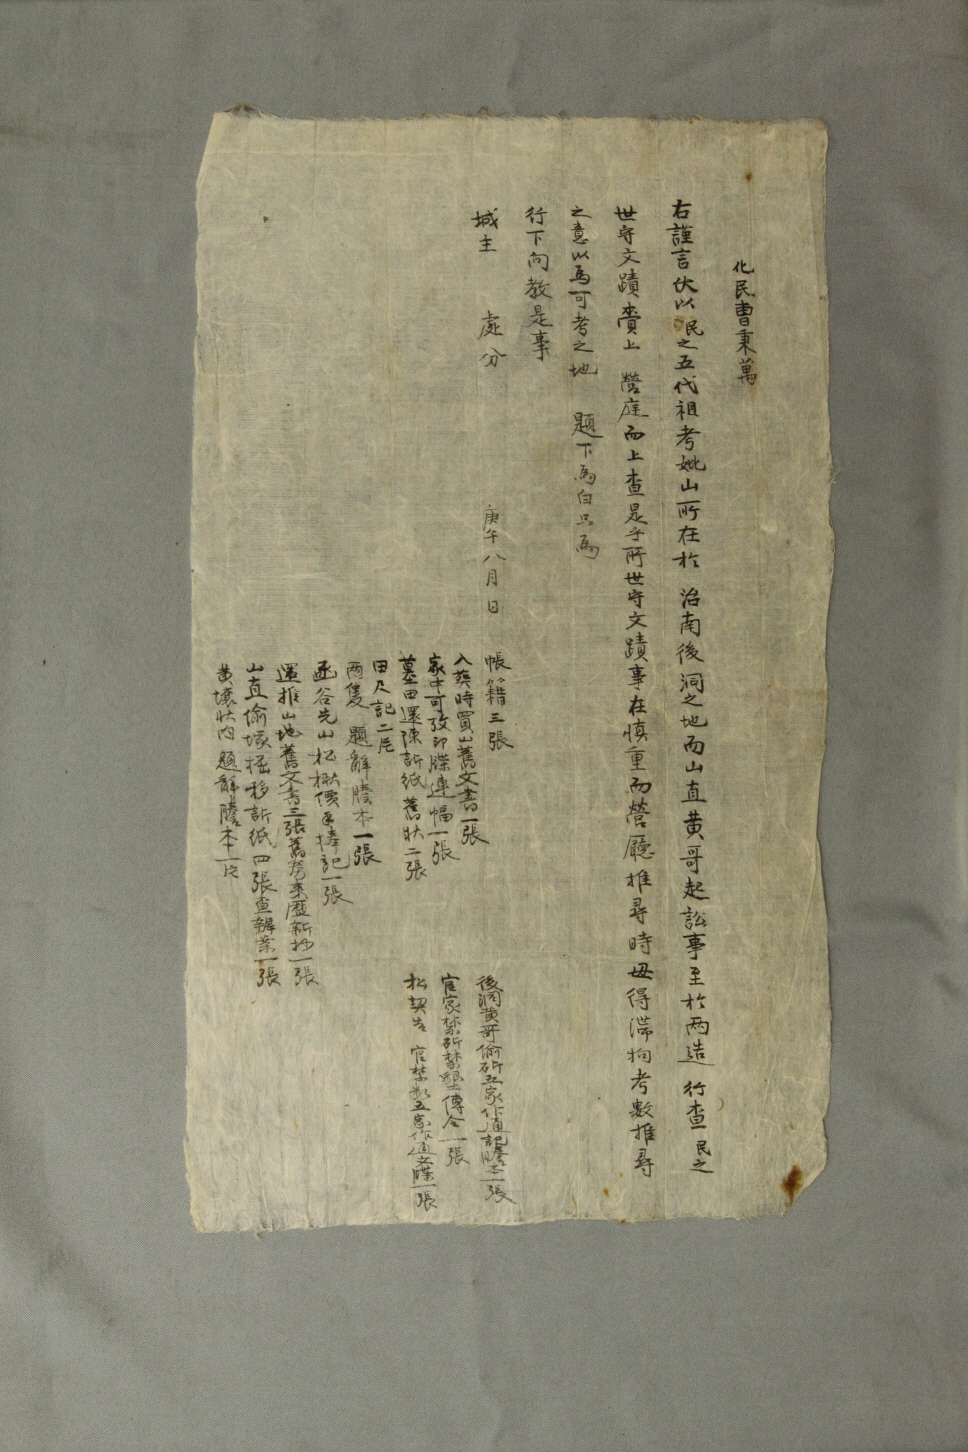 化民曹秉萬
右謹言伏以民之五代祖考妣山所在於 治南後洞之地而山直黄哥起訟事至於兩造 行查民之
世守文蹟賫上 營庭而上查是乎所世守文蹟事在慎重而營廳推尋時毋得滯拘考數推尋
之意以爲可考之地 題下爲白只爲
行下向教是事
城主 處分
庚午八月 日
帳籍三張
入葬時買山舊文書一張
家中可攷印牒連幅一張
墓田還陳訴紙舊狀二張
田尺記二片
兩隻 題辭謄本一張
函谷先山松楸價手捧記一張
還推山地舊文書三張舊考來歷新抄一張
山直偷塚掘移訴紙四張查辨案一張
黄壤狀內題辭謄本一片
後洞黄哥偷斫五家作通記謄本一張
官家禁斫禁松傳令一張
松契告 官禁斫五家作通文牒一張